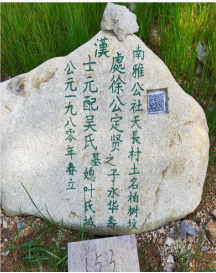 南雅公社天長村土名柏樹坟
處徐公定贤之子水华寿
漢
士元配吴氏墓媳叶氏城
公元一九八〇年春立
153